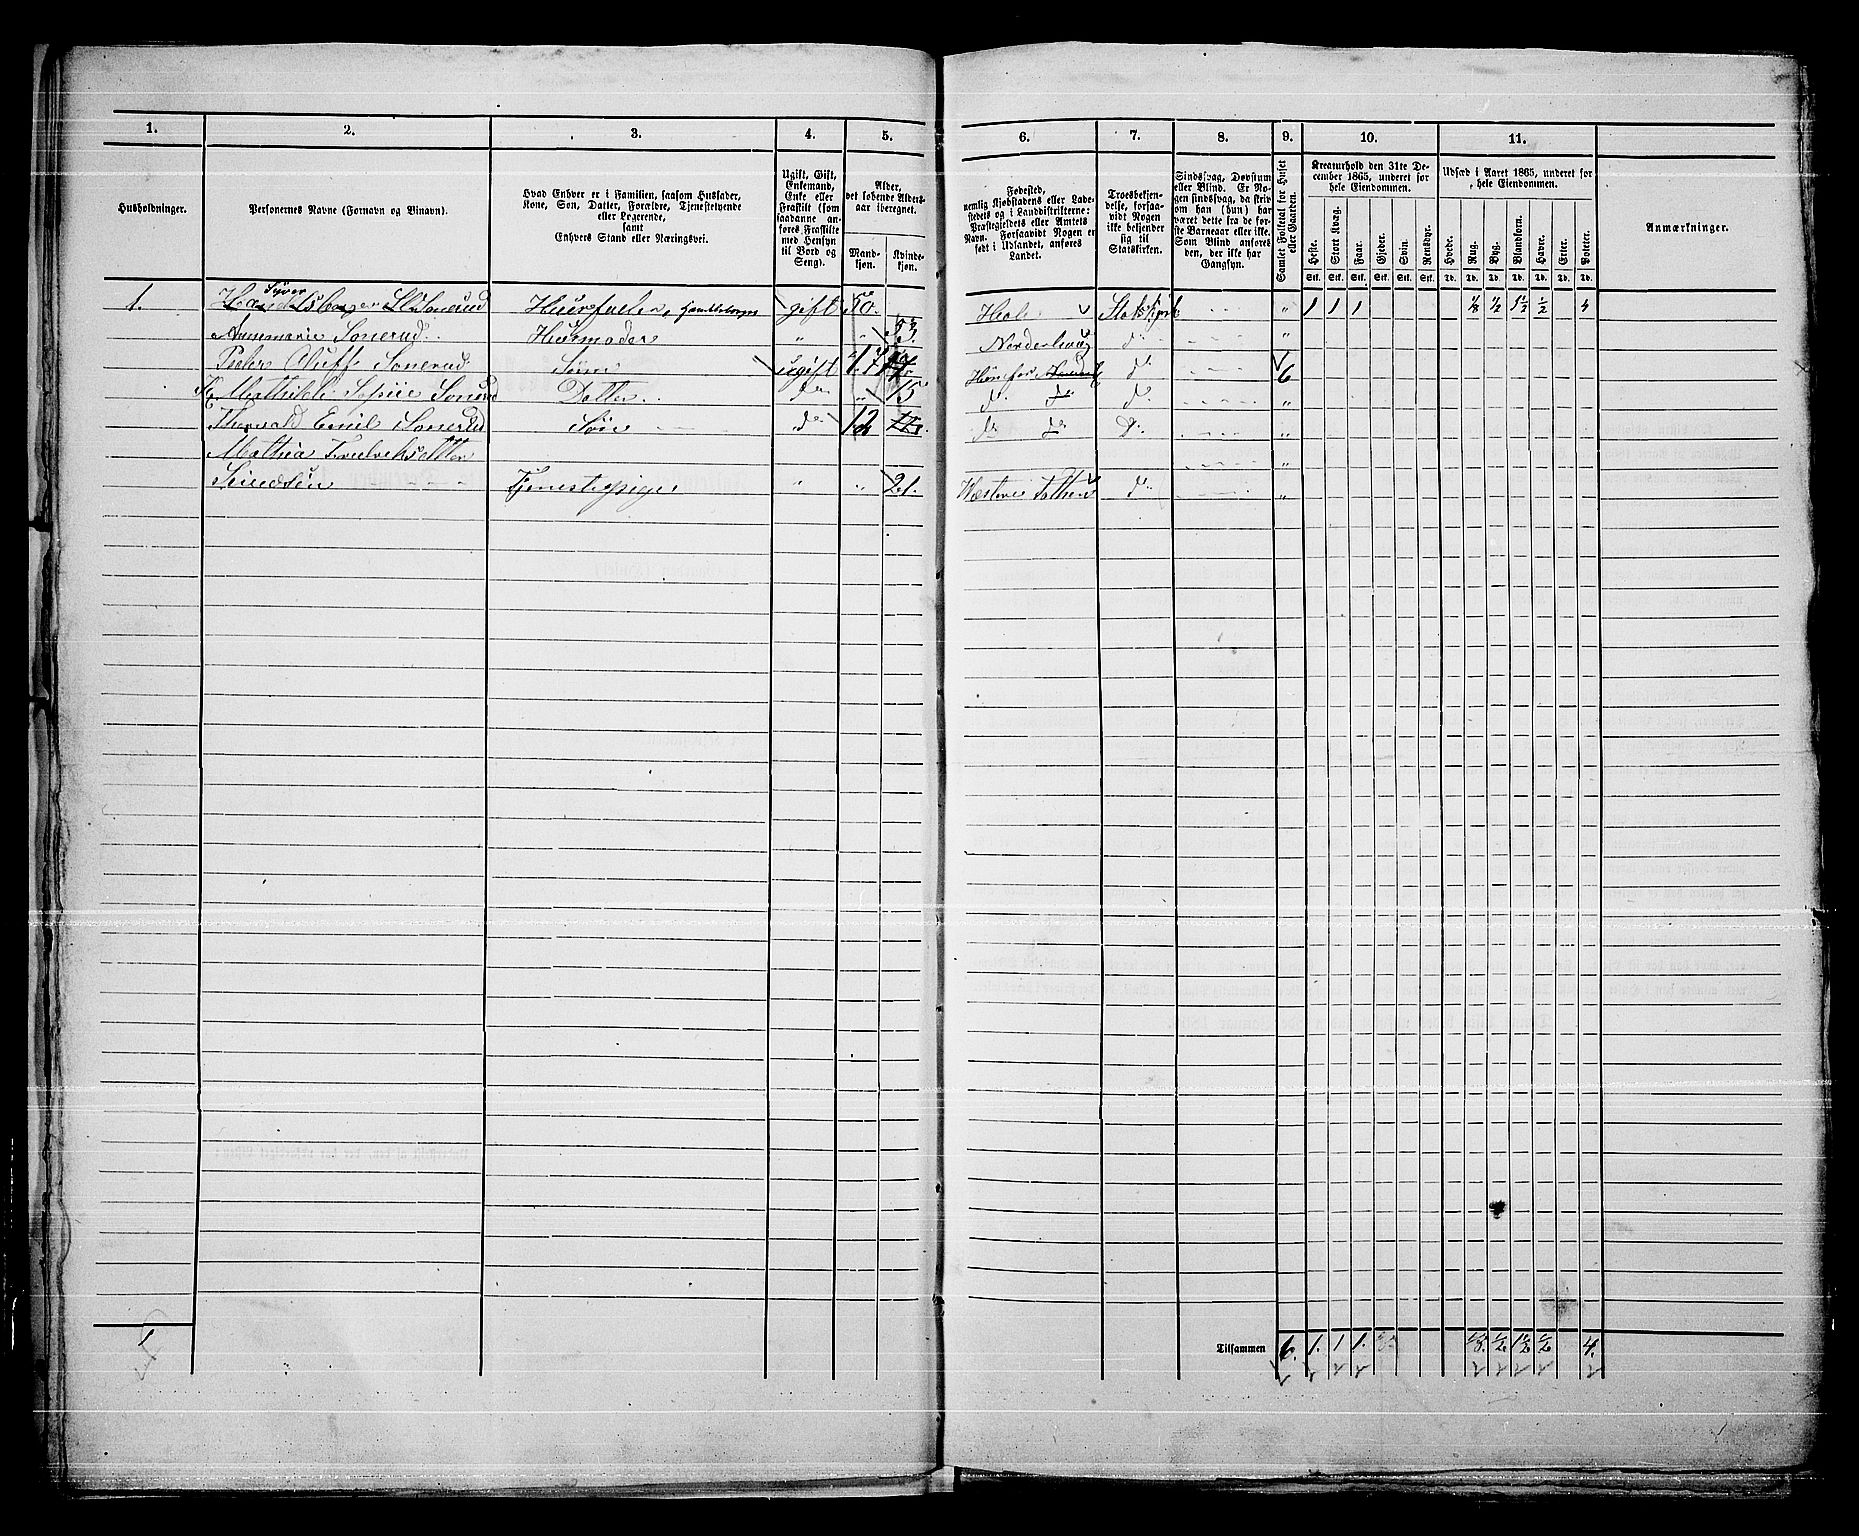 1. 2. 3. 4. 5. 6. 7. 8. 9. 10. 11.
Husholdninger.
Personernes Navne (Fornavn og Tilnavn).
Hvad Enhver er i Familien, saasom Husfader,
Kone, Søn, Datter, Forældre, Tjenestetyende
eller Logerende,
samt
Enhvers Stand eller Næringsvei.
Ugift, Gift,
Enkemand,
Enke eller
Fraskilt (som
saadanne an-
føres Fraskilte
med Hensyn
til Bord og
Seng).
Alder,
det løbende Alders-
aar iberegnet.
Mand-
kjøn.
Kvinde-
kjøn.
Fødested,
nemlig Kjøbstadens eller Lade-
stedets og i Landdistrikterne:
Præstegjeldets eller Amtets
Navn. Forsaavidt Nogen er
født i Udlandet, anføres
Landet.
Troesbekjen-
delse, forsaa-
vidt Nogen
ikke bekjender
sig til
Statskirken.
Sindssvag, Døvstum
eller Blind. Er No-
gen sindssvag, da skriv
om han (hun) har
været dette fra de før-
ste Barneaar eller ikke.
Som Blind anføres
den, der ikke har
Gangsyn.
Samlet Folketal for Huset
eller Gaarden.
Kreaturhold den 31te De-
cember 1865, underet for
hele Eiendommen.
Heste. Stort Kvæg. Faar. Gjeder. Svin. Rensdyr.
Stk. Stk. Stk. Stk. Stk. Stk.
Udsæd i Aaret 1865, underet for
hele Eiendommen.
Hvede. Rug. Byg. Blandkorn. Havre. Erter. Poteter.
Td. Td. Td. Td. Td. Td. Td.
Anmærkninger.
Syver
1. Sonerud Huusfader, gift 50. Hole Statskirk " 1 1 1 ⅛ ½ 1½ ½ 4
Annemarie Sonerud Husmoder " " 53. Norderhoug do "
Peder Oluff Sonerud Søn ugift 17 Hønefos do 6
Mathilde Sophie Sonerud Datter do " 15 do do do "
Thorvald Emil Sonerud Søn do 12 do do Do "
Mathea Fredriksdatter "
Tjenestepige " " 21. Vestre Tothen do "
1
Tilsammen 6. 1. 1 1. ⅛. ½ 1½ ½ 4.